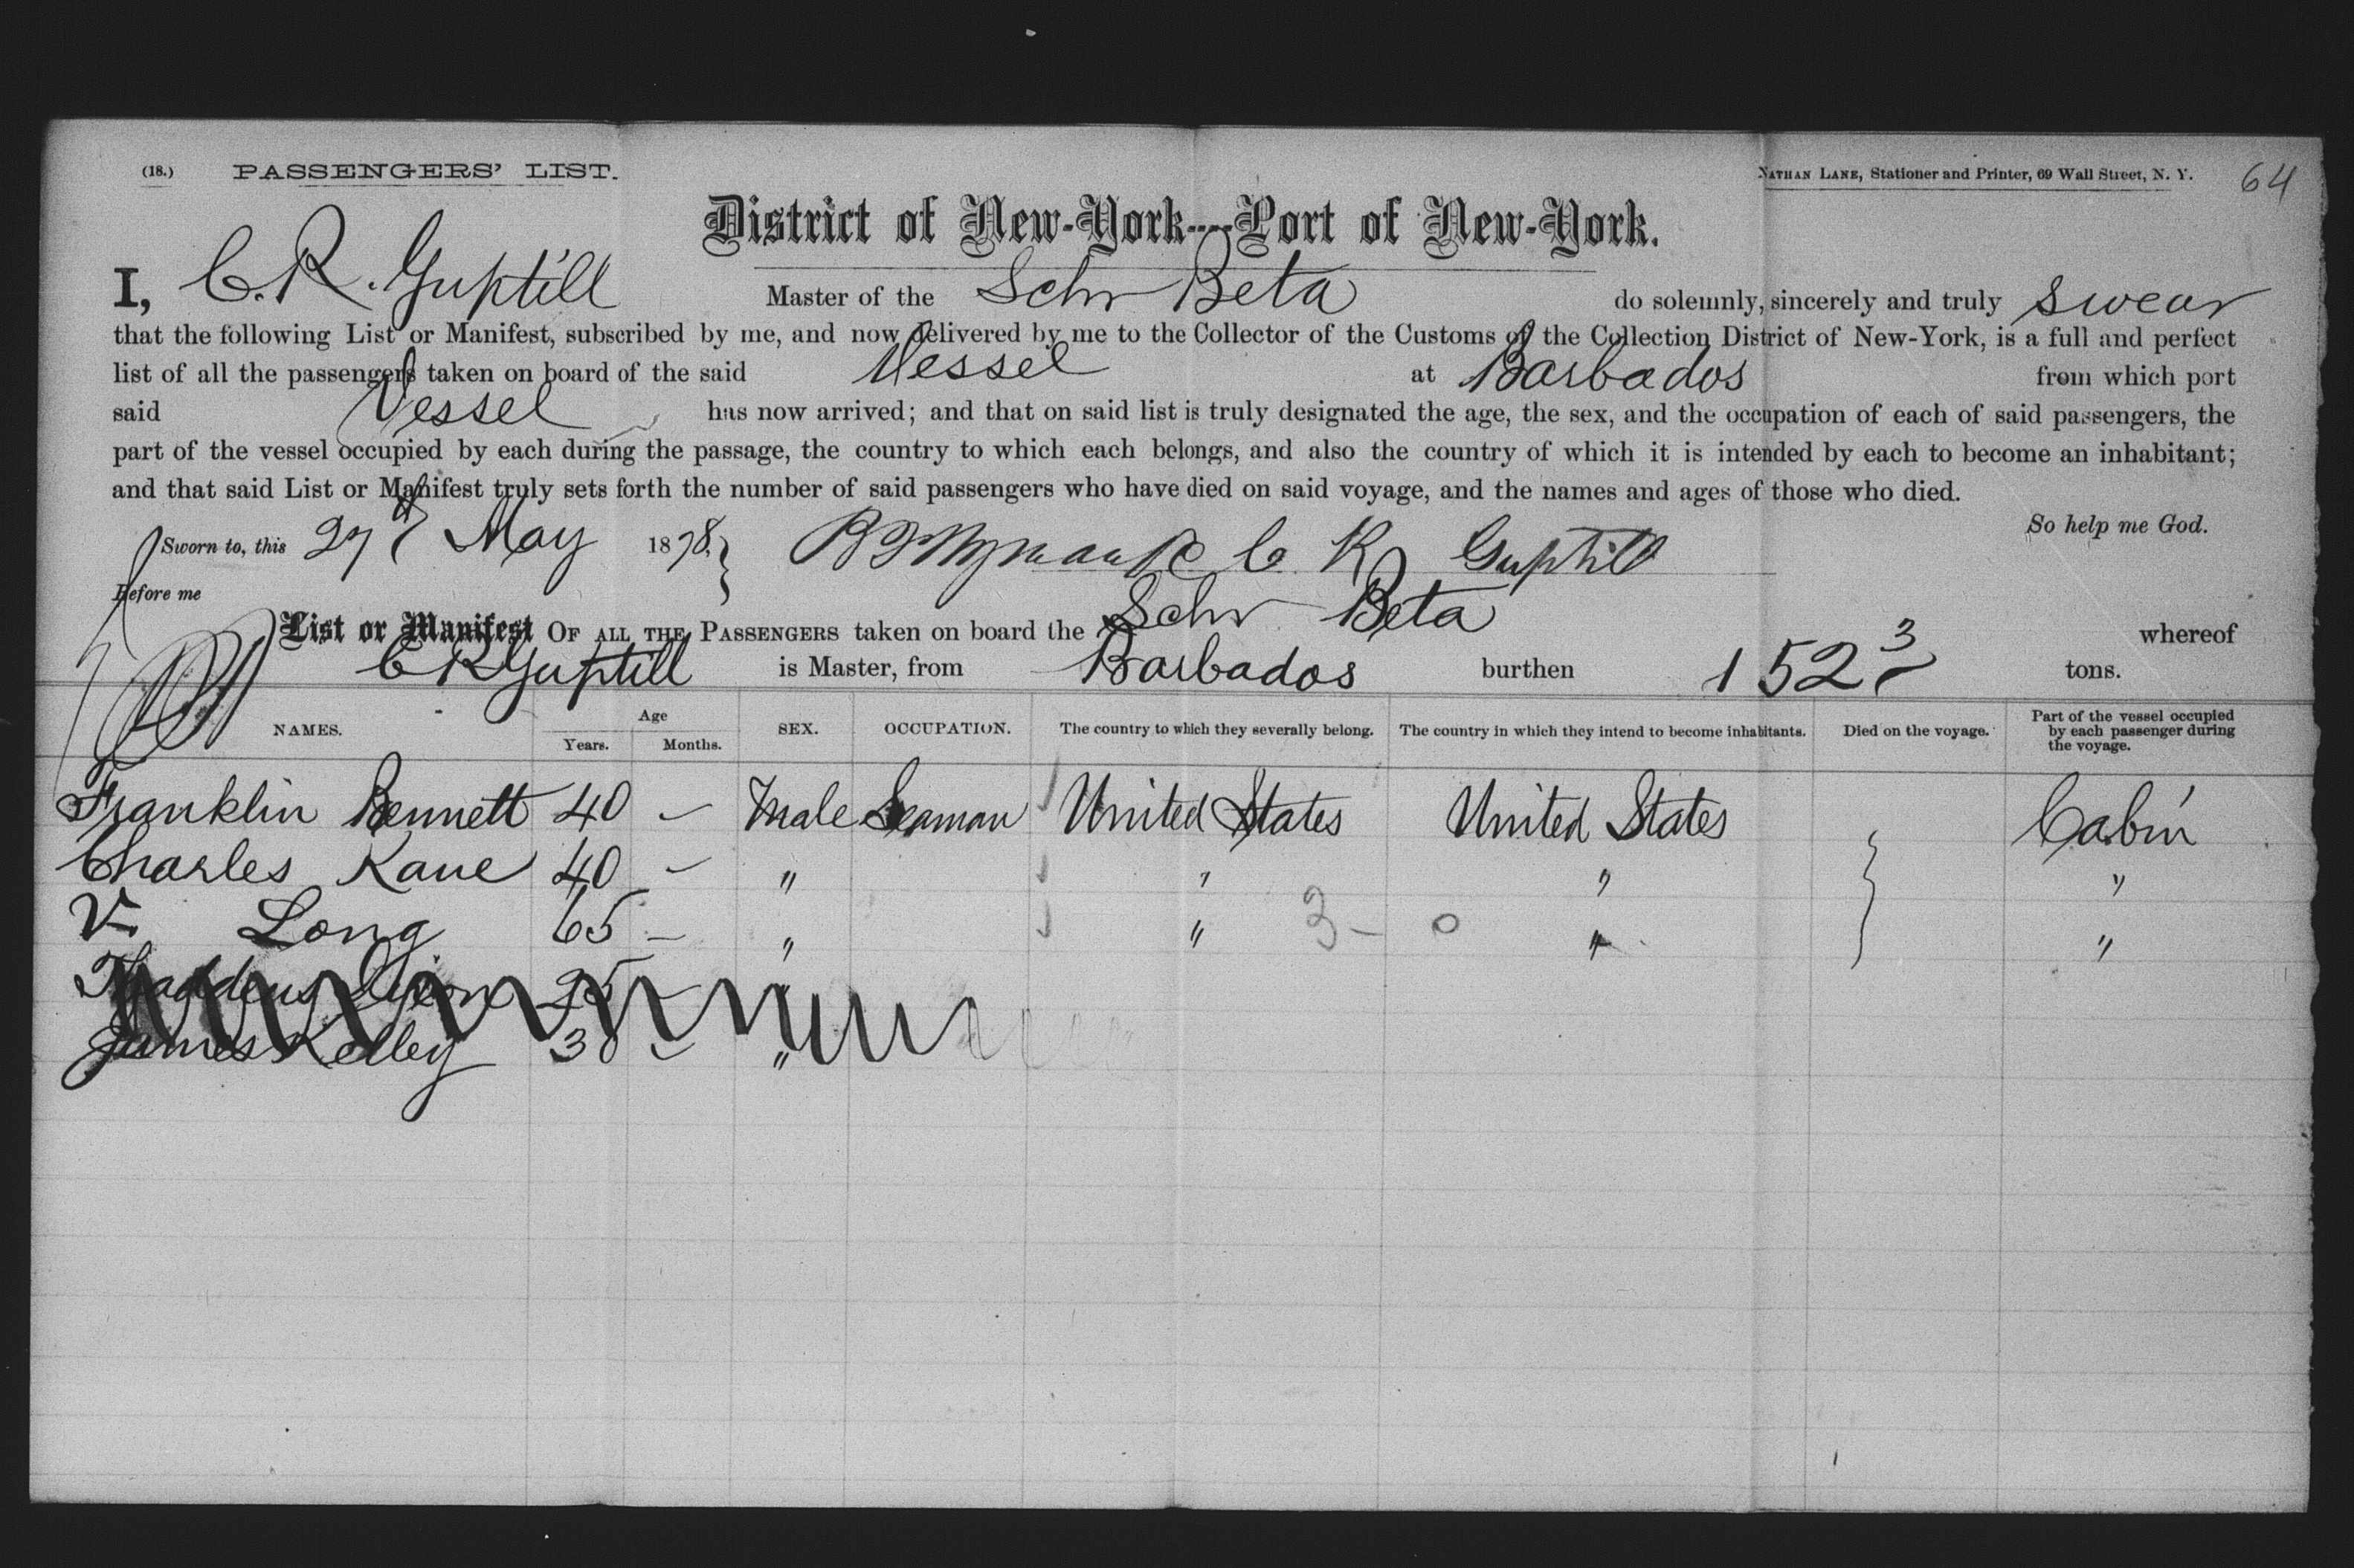 (18.) PASSENGERS' LIST. NATHAN LANE, Stationer and Printer, 69 Wall Street, N. Y. 64
District of New-York----Port of New-York.
I, C. R. Guptill Master of the Schr Beta do solemnly, sincerely and truly swear
that the following List or Manifest, subscribed by me, and now delivered by me to the Collector of the Customs of the Collection District of New-York, is a full and perfect
list of all the passengers taken on board of the said Vessel at Barbados from which port
said Vessel has now arrived; and that on said list is truly designated the age, the sex, and the occupation of each of said passengers, the
part of the vessel occupied by each during the passage, the country to which each belongs, and also the country of which it is intended by each to become an inhabitant;
and that said List or Manifest truly sets forth the number of said passengers who have died on said voyage, and the names and ages of those who died.
So help me God.
Sworn to, this 27 May 1878. C R Guptill
Before me
List or Manifest OF ALL THE PASSENGERS taken on board the Schr Beta whereof
C R Guptill is Master, from Barbados burthen 152 3 tons.
NAMES. Age Years. Months. SEX. OCCUPATION. The country to which they severally belong. The country in which they intend to become inhabitants. Died on the voyage. Part of the vessel occupied by each passenger during the voyage.
Franklin Bennett 40 – Male Seaman United States United States Cabin
Charles Kane 40 – " " " "
V. Long 65 – " " 3 – 0 " "
Thaddeus 25 – "
James Kelley 30 – "